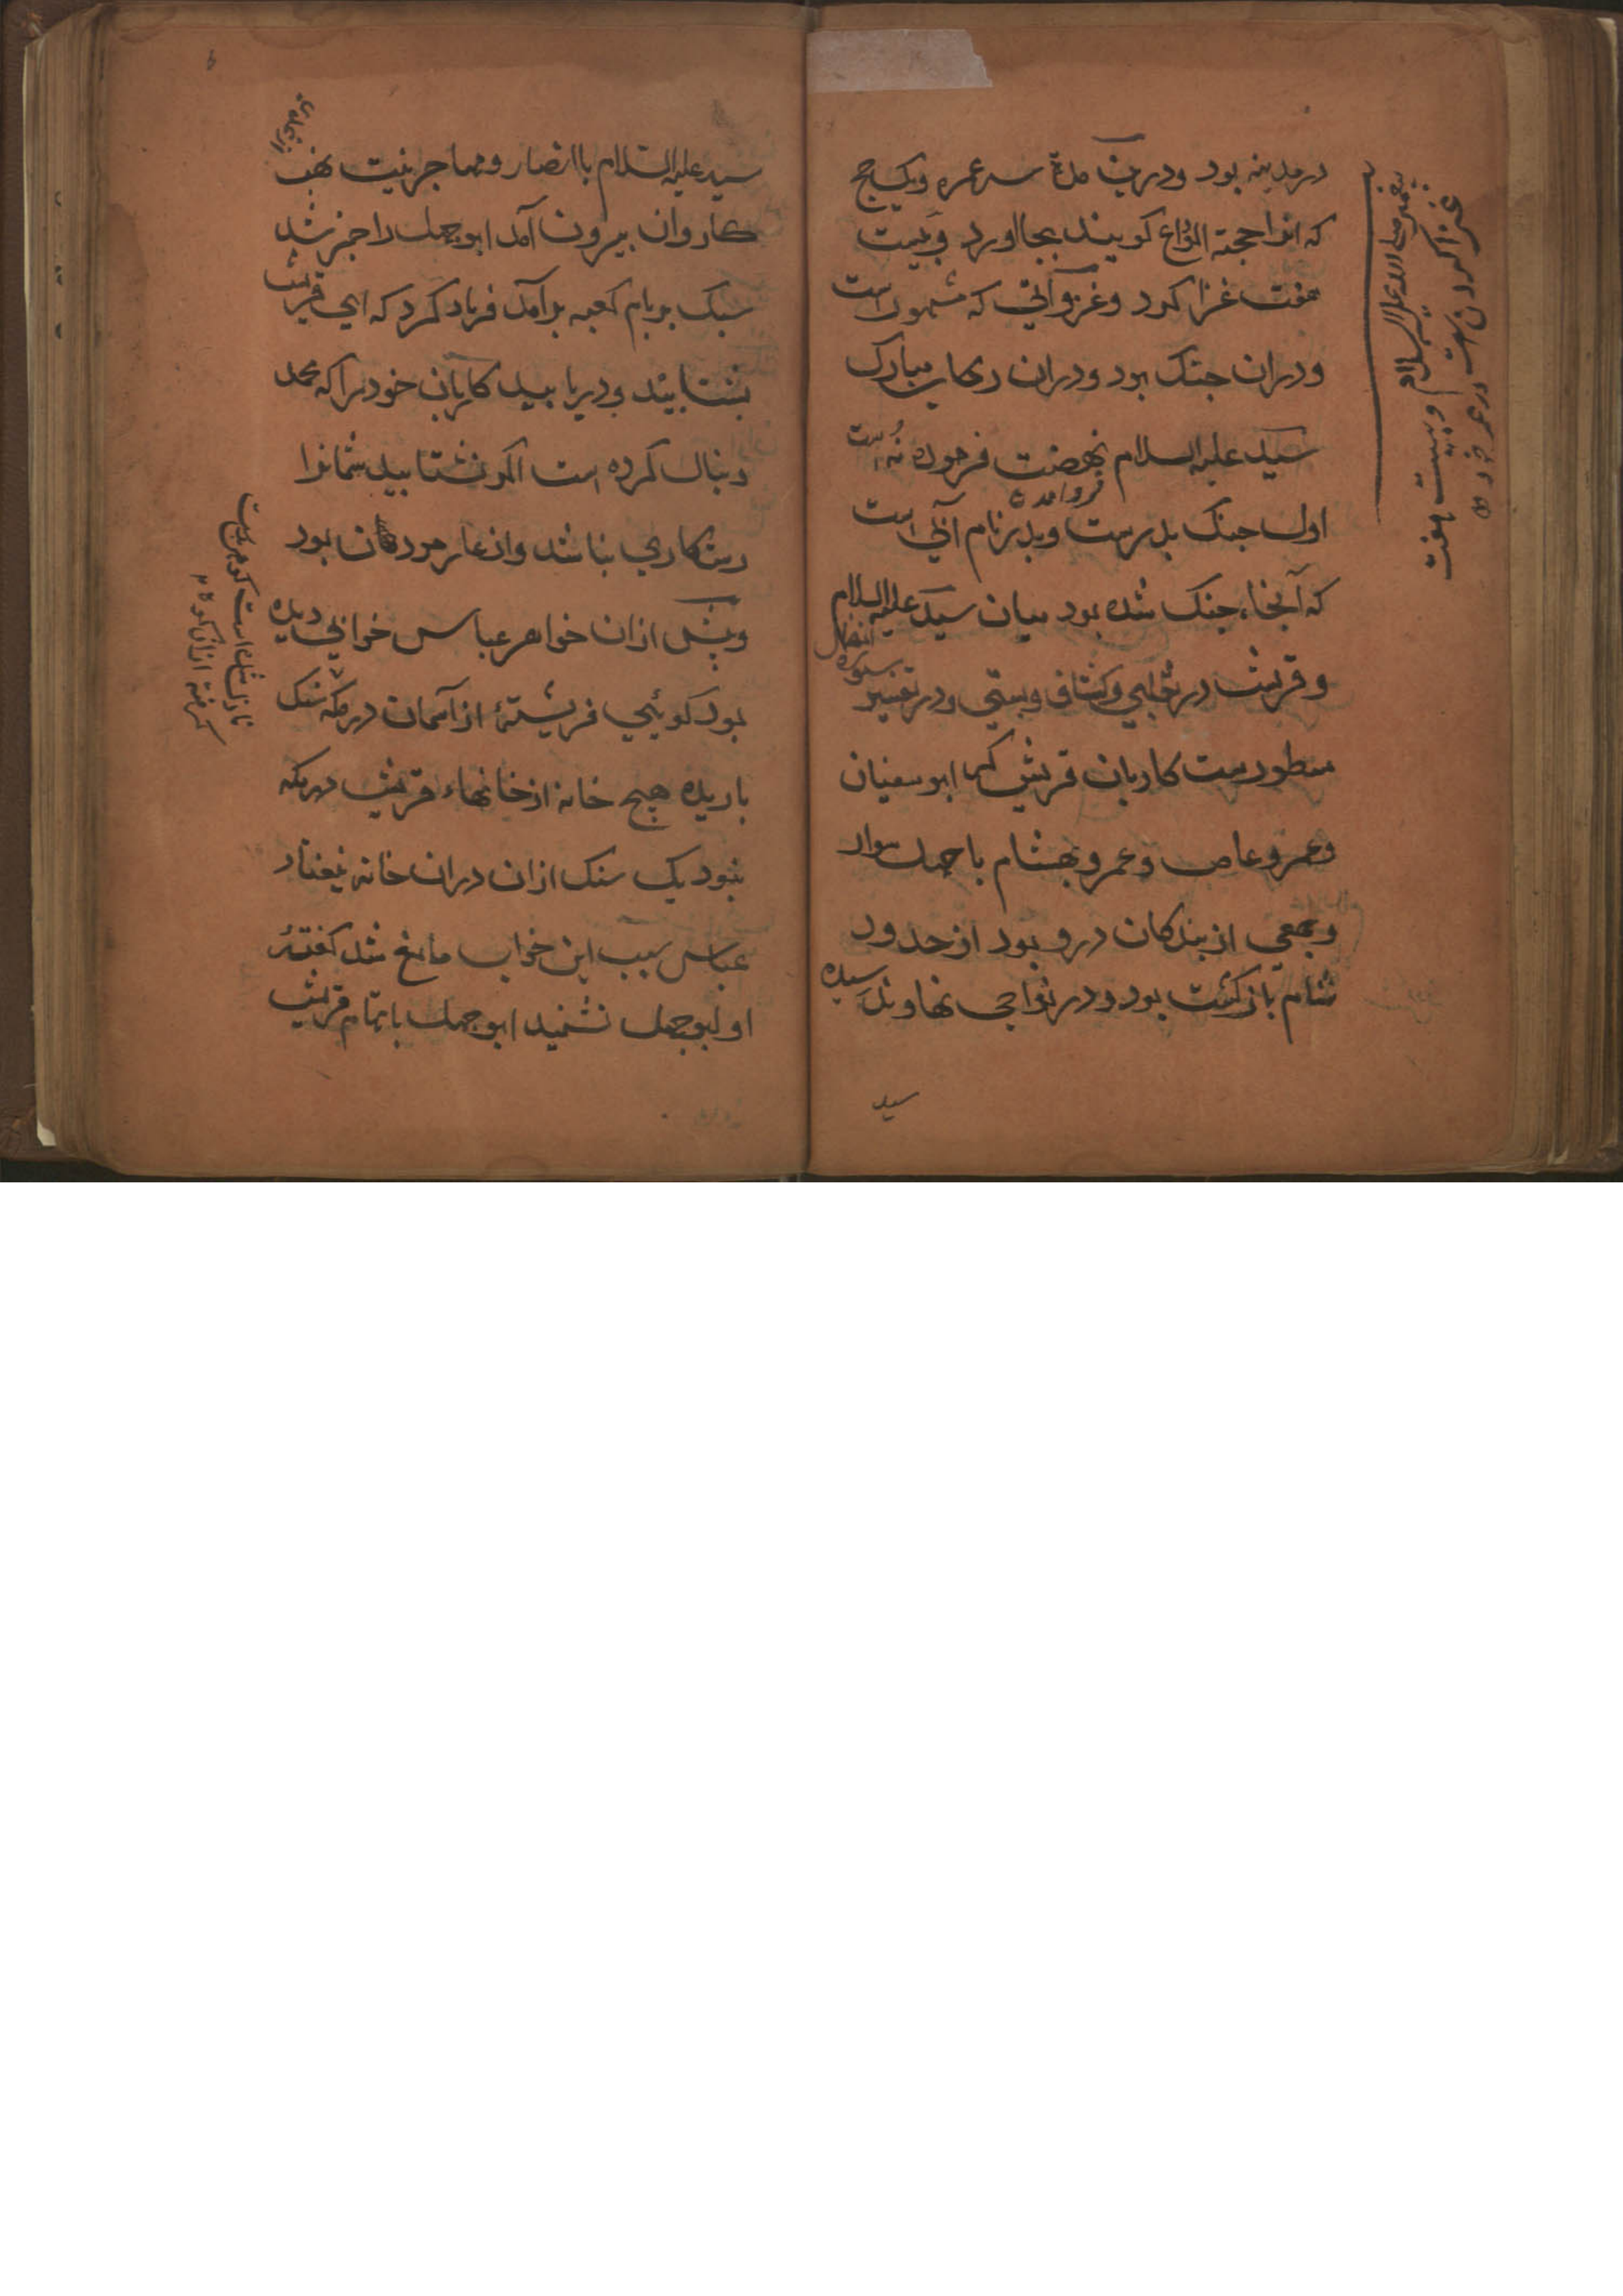 در مدینه بود ودرین مدة سه عمره ویک حج
که انرا حجة الوداع کویند بجا اورد و بیست
هفت غزا کرد وغزواتی که مشهور است
ودران جنک بود ودران رکاب مبارک
سید علیه السلام نهضت فرموده نه است
اول جنک بدرست وبدر نام آبی است
که آنجا جنک شده بود میان سید علیه السلام
وقریش در وکشاف وبستی ودر تفسیر سوره انفال
مسطورست کاروان قریش که ابوسفیان
وعمرو عاص وعمرو بهشام با چهل سوار
وجمعی از بندکان درو بود از حدود
شام بازکشت بود ودر نواحی رسیده
سید
پیغمبر صلی الله علیه السلام وبیست هفت
غزا کردن است در عمر خود
سید علیه السلام با انصار ومهاجر بنیت نهب
کاروان بیرون آمد ابوجهل را خبر شد
سبک بر بام کعبه برآمد فریاد کرد که ای قریش
بشتابید ودریابید کاروان خود را که محمد
دنبال کرده است اکر نشتابید شمانرا
رستکاری نباشد واز عار بود
وپیش ازان خواهر عباس خوابی دیده
بود کوئی فریشتهٔ از آسمان در مکه سنک
باریده هیچ خانه از خانهاء قریش در مکه
نبود یک سنک ازان دران خانه نیفتاد
عباس سبب این خواب مانع شد کفتهٔ
او ابوجهل نشنید ابوجهل باتمام قریش